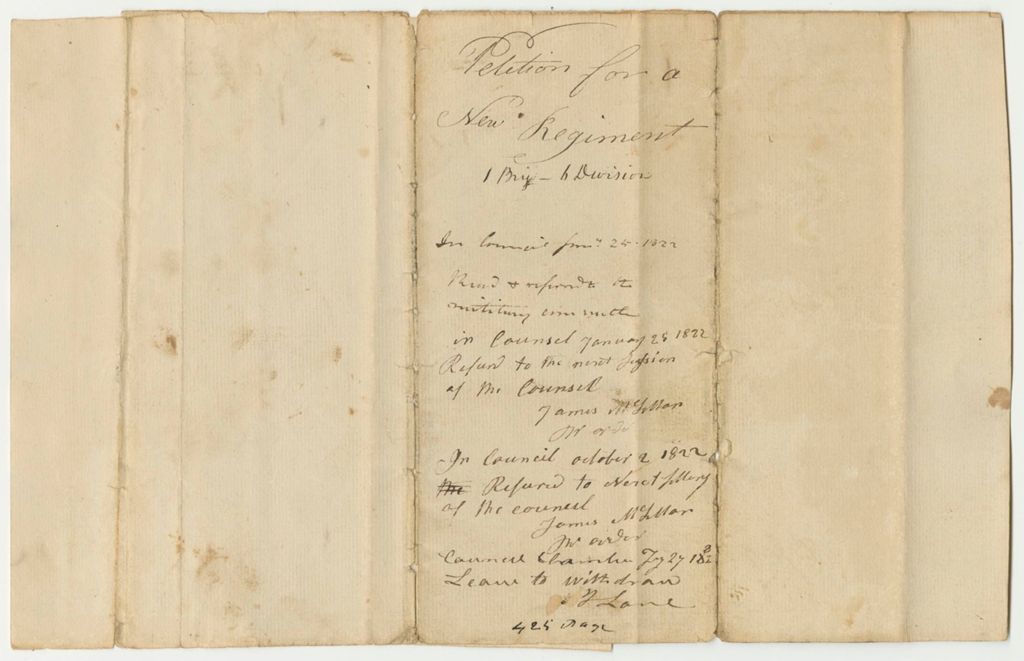 Petition for a
New Regiment
1 Brig – 6 Division
In Council Jany 25 1822
Read & referred to the
military committe
in Counsel January 25 1822
Refurd to the next Session
of the Counsel
James McLellan
Pr order
In Council october 2 1822
the Refured to Next
of the council
James McLellan
Pr order
Council Chamber 27
Leave to withdraw
Lane
425 Page